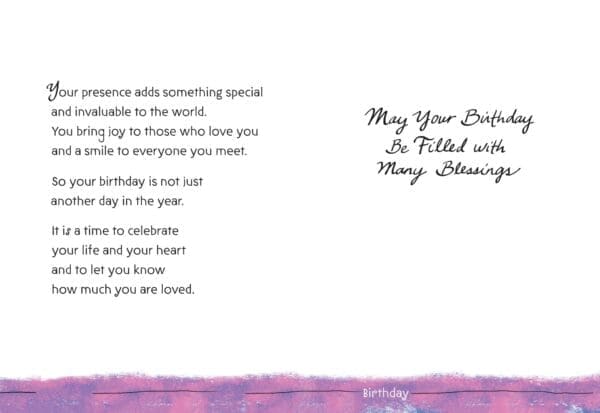 Your presence adds something special
and invaluable to the world.
You bring joy to those who love you
and a smile to everyone you meet.
So your birthday is not just
another day in the year.
It is a time to celebrate
your life and your heart
and to let you know
how much you are loved.
May Your Birthday
Be Filled with
Many Blessings
Birthday